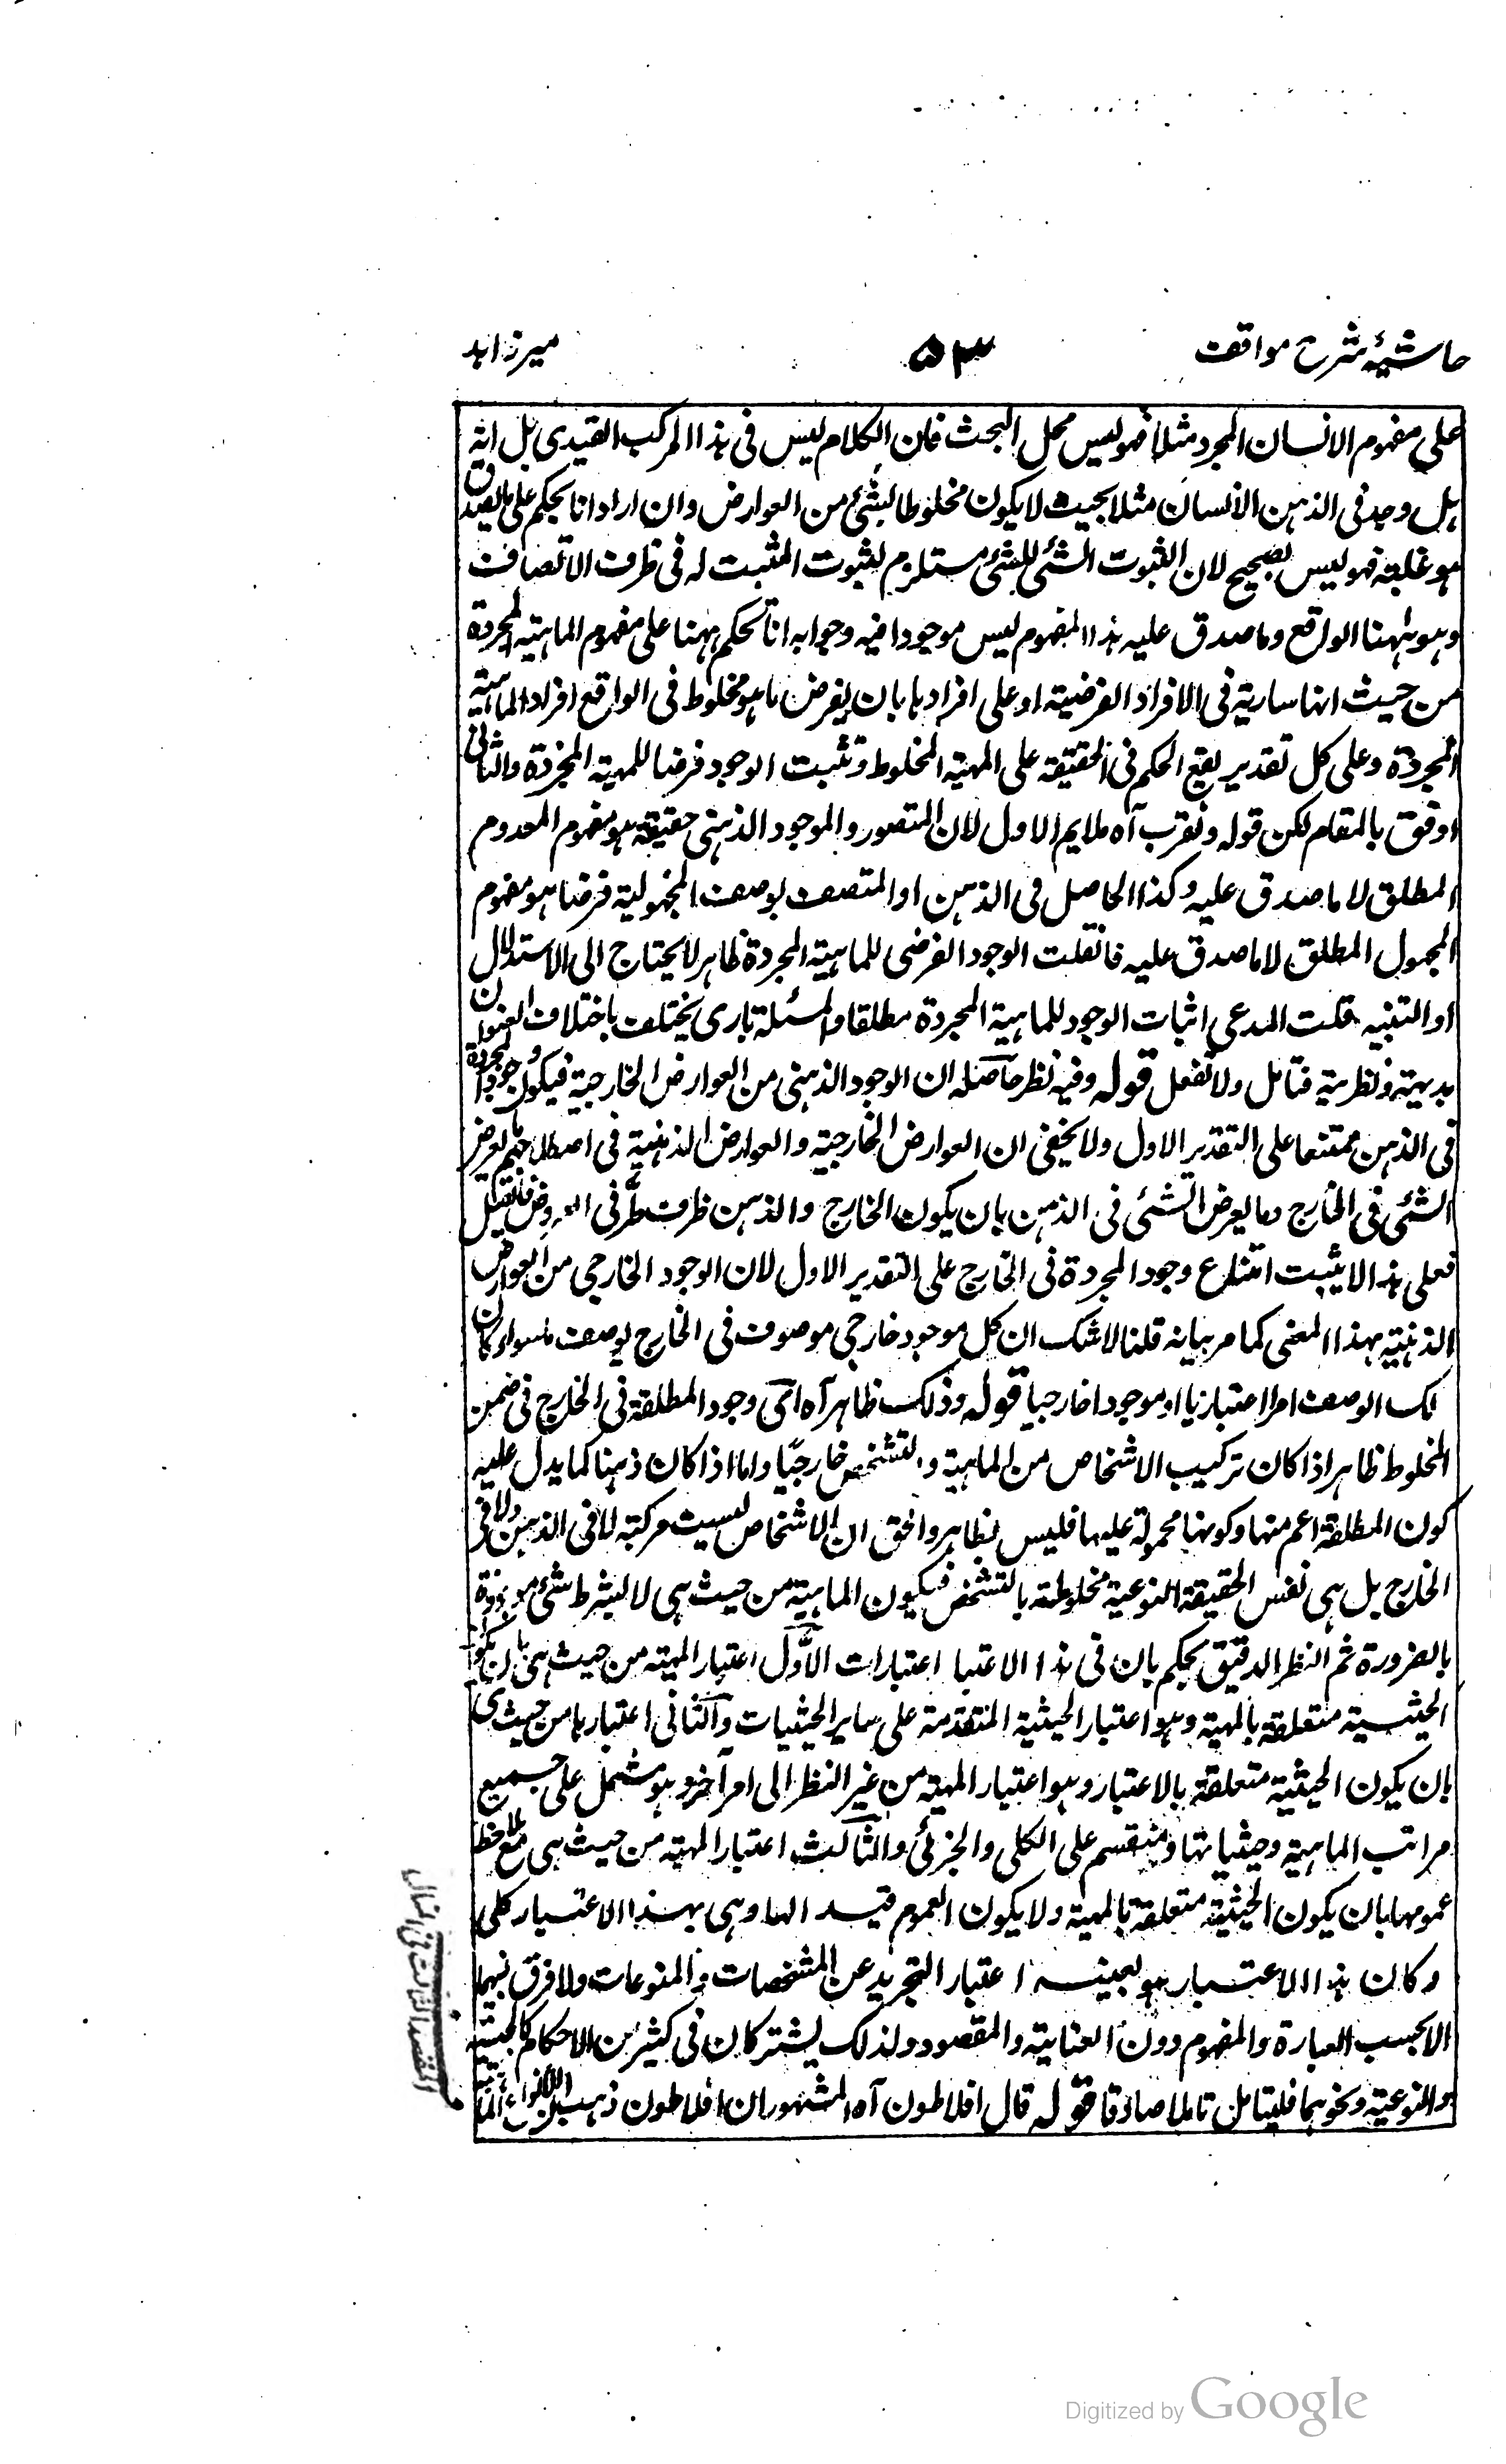 حاشیۂ شرح مواقف ۵۳ میرزاہد
على مفهوم الانسان المجرد مثلا فهو ليس محل البحث فان الكلام ليس في هذا المركب القيدى بل انه
هل وجد في الذهن الانسان مثلا بحيث لا يكون مخلوطا بشئ من العوارض وان اراد انا نحكم على ما يصدق
هو عليه فهو ليس بصحيح لان الثبوت الشئ للشئ مستلزم لثبوت المثبت له في ظرف الاتصاف
وهو ههنا الواقع وما صدق عليه هذا المفهوم ليس موجودا فيه وجوابه انا نحكم ههنا على مفهوم الماهية المجردة
من حيث انها سارية في الافراد الفرضية او على افرادها بان يفرض ما هو مخلوط في الواقع افراد الماهية
المجردة وعلى كل تقدير يقع الحكم في الحقيقة على المهية المخلوطة وتثبت الوجود فرضا للمهية المجردة والثاني
اوفق بالمقام لكن قوله وتقرب آه ملايم الاول لان المتصور والموجود الذهنى حقيقة هو مفهوم المعدوم
المطلق لا ما صدق عليه وكذا الحاصل في الذهن او المتصف بوصف المجهولية فرضا هو مفهوم
المجهول المطلق لا ما صدق عليه فان قلت الوجود الفرضى للماهية المجردة ظاهر لا يحتاج الى الاستدلال
او التنبيه قلت المدعى اثبات الوجود للماهية المجردة مطلقا والمسئلة تارى يختلف باختلاف العنوان
بديهية ونظرية فتامل ولا تغفل قوله وفيه نظر حاصله ان الوجود الذهنى من العوارض الخارجية فيكون وجود المجردة
في الذهن ممتنعا على التقدير الاول ولا يخفى ان العوارض الخارجية والعوارض الذهنية في اصطلاحهم ما يعرض
الشئ في الخارج وما يعرض الشئ في الذهن بان يكون الخارج والذهن ظرف طرفى العروض فان قيل
فعلى هذا لا يثبت امتناع وجود المجردة في الخارج على التقدير الاول لان الوجود الخارجى من العوارض
الذهنية بهذا المعنى كما مر بيانه قلنا لا شك ان كل موجود خارجى موصوف في الخارج بوصف ما سواء كان
لك الوصف امرا اعتباريا او موجودا خارجيا قوله وذلك ظاهر آه اى وجود المطلقة في الخارج في ضمن
المخلوط ظاهر اذا كان تركيب الاشخاص من الماهية والتشخص خارجيا واما اذا كان ذهنيا كما يدل عليه
كون المطلقة اعم منها وكونها محمولة عليها فليس بظاهر والحق ان الاشخاص ليست مركبة لا في الذهن ولا في
الخارج بل هى نفس الحقيقة النوعية مخلوطة بالتشخص فيكون الماهية من حيث هى لا بشرط شئ موجودة
بالضرورة ثم النظر الدقيق يحكم بان في هذا الاعتبا اعتبارات الاول اعتبار المهية من حيث هى بان يكون
الحيثية متعلقة بالمهية وهو اعتبار الحيثية المتقدمة على ساير الحيثيات والثانى اعتبارها من حيث هى
بان يكون الحيثية متعلقة بالاعتبار وهو اعتبار المهية من غير النظر الى امر آخر وهو مشتمل على جميع
مراتب الماهية وحيثياتها ومنقسم على الكلى والجزئى والثالث اعتبار المهية من حيث هى مع ملاحظة
عمومها بان يكون الحيثية متعلقة بالمهية ولا يكون العموم قيد الها وهى بهذا الاعتبار كلى
وكان هذا الاعتبار هو بعينه اعتبار التجريد عن المشخصات والمنوعات ولا فرق بينهما
الا بحسب العبارة والمفهوم دون العناية والمقصود ولذلك يشتركان في كثير من الاحكام كالجنسية
والنوعية ونحوهما فليتامل تاملا صادقا قوله قال افلاطون آه المشهور ان افلاطون ذهب
Digitized by Google